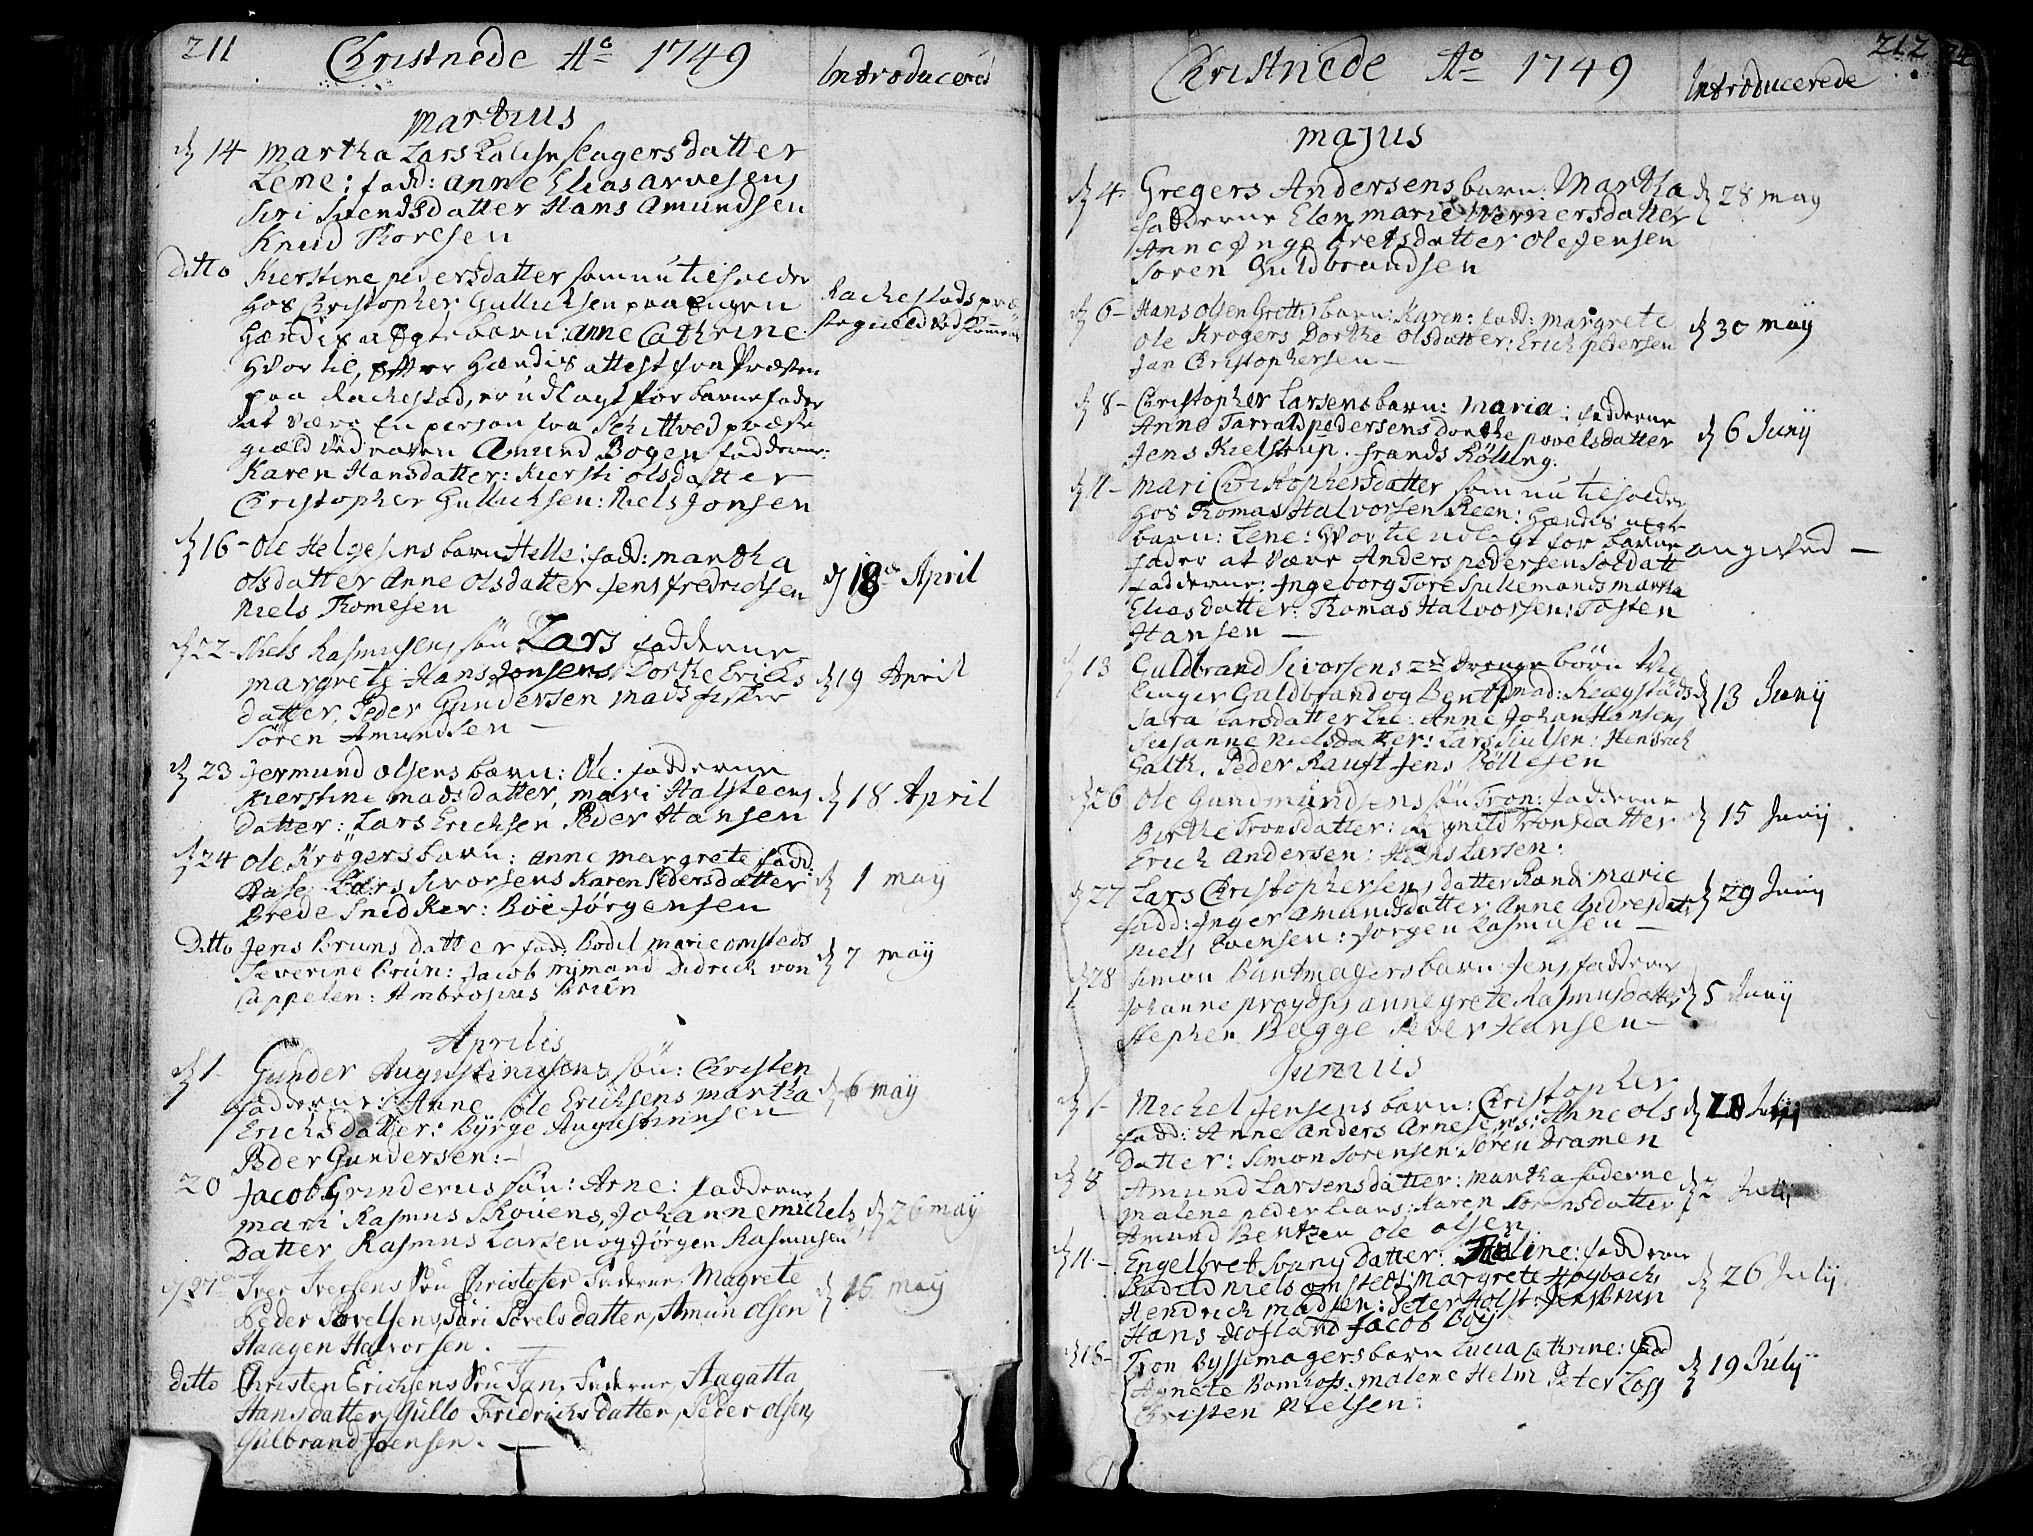 211
Christnede Aº 1749
Introducered
Martius
d 14 Martha Lars datter
Lene: fadd: Anne Elias Arvesens
Siri Svendsdatter Hans Amundsen
Knud Thoresen
Ditto Kierstine pedersdatter som nu tilholder
hos Christopher Gullichsen paa
Hændis uægte barn: Anne Cathrine
Rachestads præ
stegield ved
hvor til, efter Hændis attest fra Præsten
paa Rachestad, er udlagt for barnefader
at være En person fra præste
gield ved navn Amund Bogen fadderne:
Karen Hansdatter: Kiersti olsdatter
Christopher Gullichsen: Niels Jonsen
d 16 - Ole Helgesens barn Helle: fadd: Martha
olsdatter Anne olsdatter Jens fredrichsen
Niels Thomesen
d 18 April
d 22 - Niels Rasmusens sön: Lars fadderne
Margrete Hans Jonsens Dorthe Erichs
datter, Peder Gundersen Mads fisker
Sören Amundsen —
d 19 April
d 23 Jermund olsens barn: Ole: fadderne
Kierstine madsdatter, mari Halsteens
datter: Lars Erichsen Peder Hansen
d 18 April
d 24 Ole Krögers barn: Anne Margrete fadd:
Lars Sivorsens Karen Pedersdatter
Brede Snedker: Boe Jörgensen
d 1 maij
Ditto Jens Bruns datter fadd: Bodil marie omsteds
Severine Brun: Jacob Nÿmand Didrich von
Cappelen: Ambrosius Brun
d 7 maij
Aprilis
d 1 - Gunder Augustinusens sön: Christen
fadderne: Anne Ole Erichsens Martha
Erichsdatter: Byrge Augustinusen
Peder Gundersen: —
d 6 maij
20 Jacob Grinderus sön: Arne: fadderne
mari Rasmus Skouens, Johanne michels
Datter Rasmus Larsen og Jörgen Rasmusen
d 26 maij
d 27 Iver Iversens Sön Christofer Faderne, Magrete
Peder Povelsens, Siri Povels datter, Amun Olsen
Haagen Halvorsen. —
d 16 maij
ditto Christen Erichsens Sön Jan, Faderne, Aagatta
Hansdatter, Gullo Fridrichsdatter, Peder olsen,
Gulbrand Joensen. —
212
Christnede Aº 1749
Introducerede
Majus
d 4 - Gregers Andersens barn: Martha
fadderne Elen marie Wernersdatter
Anne Inge bretsdatter Ole Jensen
Sören Guldbrandsen
d 28 maij
d 6 - Hans olsen barn: Karen: fadd: margrete
Ole Krögers Dorthe olsdatter: Erich pedersen
Jan Christophersen —
d 30 maij
d 8 - Christopher Larsens barn: Maria: fadderne
Anne Tarrald pedersens dorthe povelsdatter
Jens Kielstrup. frands Rölling.
d 6 Junij
d 11 - Mari Christophersdatter som nu tilholder
hos Thomas Halvorsen Reen: hændis uægte
barn: Lene: hvortil udlagt for barne
fader at være Anders pedersen Soldatt
fadderne: Ingeborg Tore Spillemands martha
Eliasdatter: Thomas Halvorsen: Tosten
Hansen —
angived —
d 13 Guldbrand Sivorsens 2de drenge börn
Guldbrand og Bent
Sara Larsdatter Lie: Anne Johan Hansens
Susanne Nielsdatter: Lars Hendrich
Galth. Peder Rauft Jens Böllesen
d 13 Junij
d 26 Ole Gundmundsens sön Tron: fadderne
Birthe Tronsdatter: Ragnild Tronsdatter
Erich Andersen: Hans Larsen:
d 15 Junij
d 27 Lars Christophersens datter Rand: Marie
fadd: Inger Amundsdatter Anne Andresdatt
Niels Evensen: Jörgen Rasmusen —
d 29 Junij
d 28 Simon Buntmagers barn: Jens fadderne
Johanne anne grete Rasmusdatter
Stephen Begge Peder Hansen —
d 5 Junij
Junius
d 1 - Michel Jensens barn: Christopher
fadd: Anne Anders Arnesens: Anne ols
datter: Simon Sorensen: Sören dramen
d 28 Julij
d 8 Amund Larsens datter: Martha faderne
Malene peder Karen Sörensdatter
Amund Bentzen Ole olsen
d 2 Julij
d 11 - Engelbret datter: faddeerne
Bodild Niels omsteds: Margrete Höybachs
Hendrich madsen: Peter Holst: Jens Brun
Hans Hofland Jacob Böij
d 26 Julij
d 18 - Tron Byssemagers barn Lucia Cathrine: fadd
Agnete Bomhofs: malene Helm Peter Loss
Christen Nielsen:
d 19 Julij